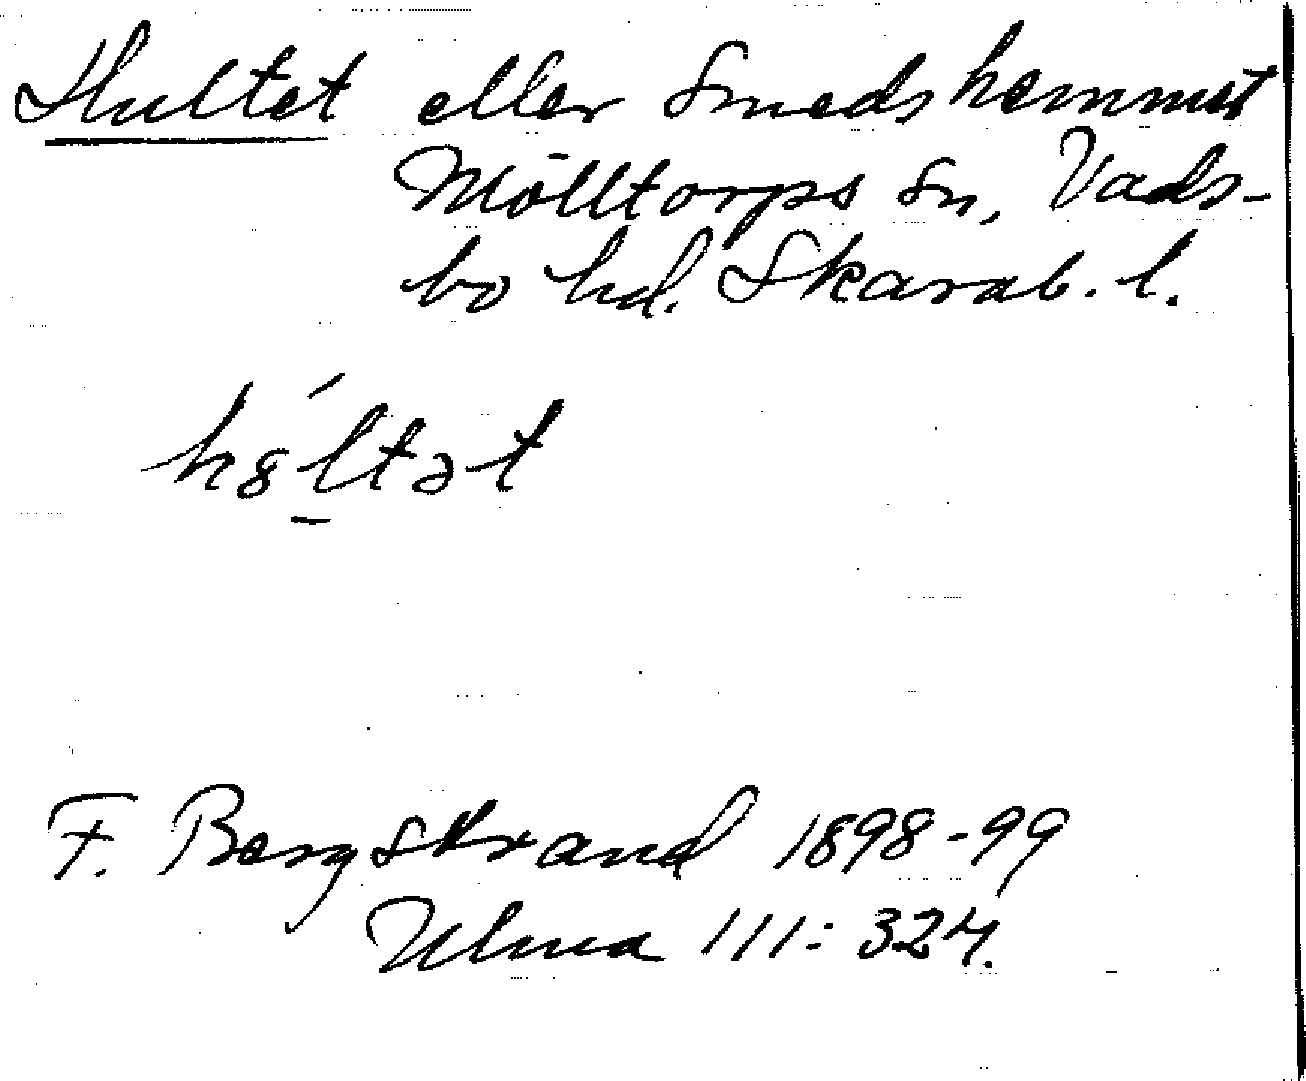 Hultet eller Smedshemmet
Mölltorps sn, Vads-
bo hd. Skarab. l.
h8́ltət
F. Bergstrand 1898-99
Ulma 111: 324.